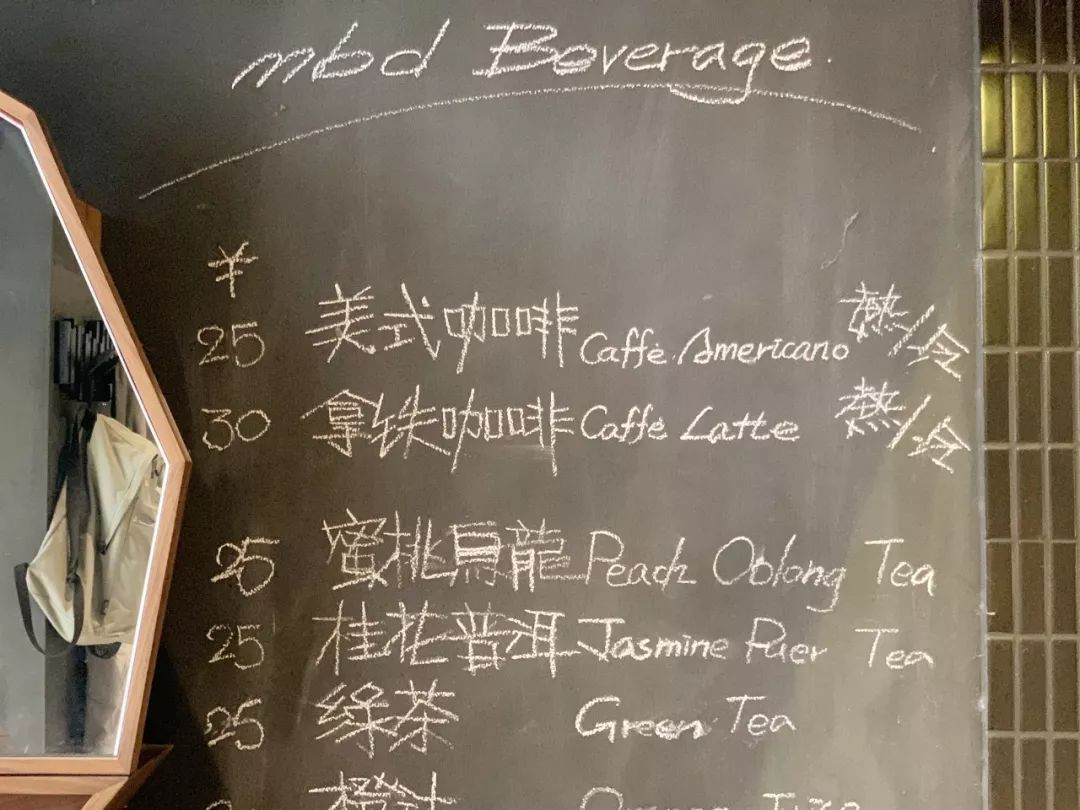 mbd Boverage.
¥
25 美式咖啡 Caffè Americano 熱/冷
30 拿铁咖啡 Caffè Latte 熱/冷
25 蜜桃烏龍 Peach Oolong Tea
25 桂花普洱 Jasmine Puer Tea
25 綠茶 Green Tea
橙汁 Orange Juice